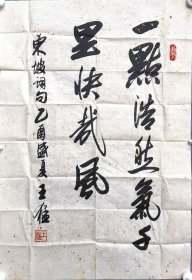 一點浩然氣千
里快哉風
東坡詞句乙酉盛夏王雄